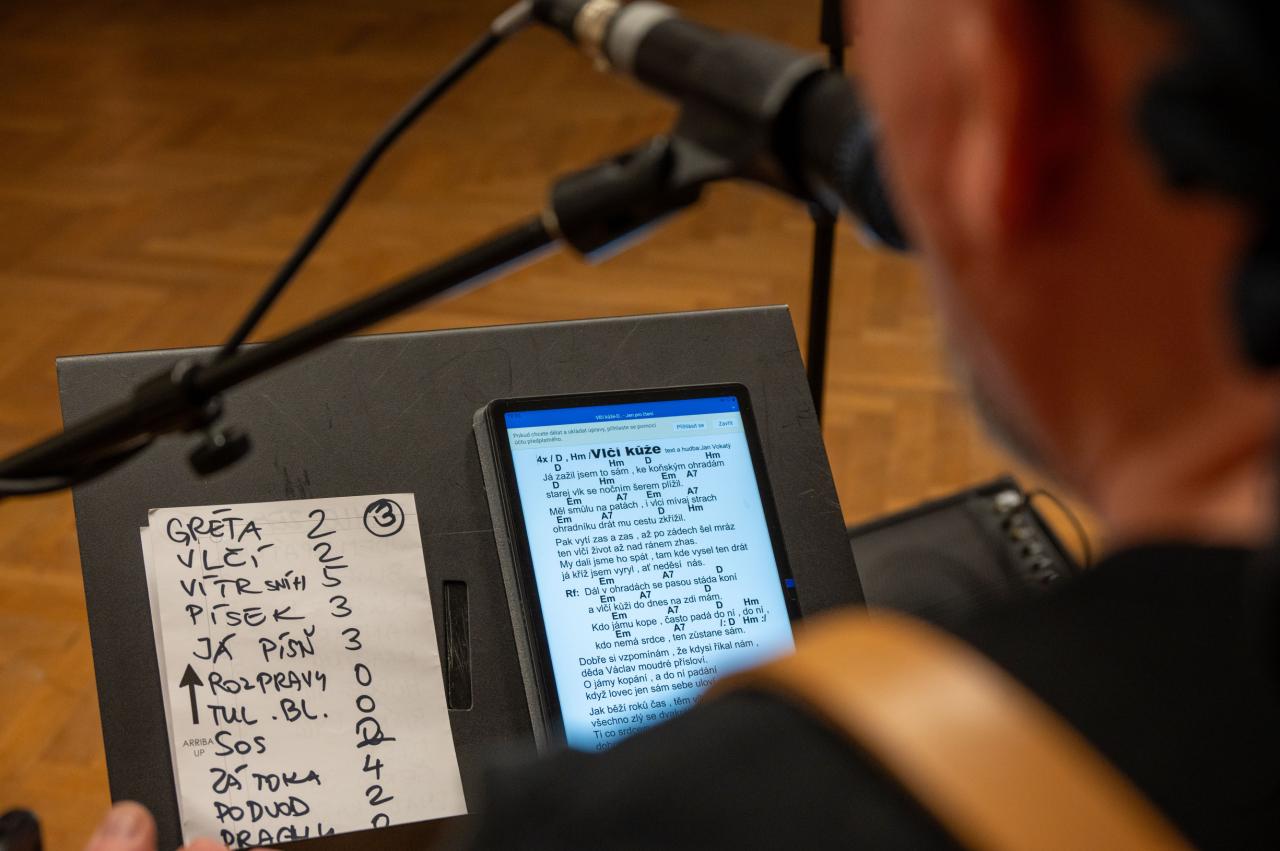 GRÉTA 2 3
VLČÍ 2
VÍTR SNÍH 5
PÍSEK 3
JÁ PÍSŇ 3
ROZPRAVY 0
TUL. BL. 0
ARRIBA
UP
SOS
ZÁTOKA 4
PODVOD 2
Vlčí kůže-D.. - Jen pro čtení
Pokud chcete dělat a ukládat úpravy, přihlaste se pomocí
účtu předplatného.
Přihlásit se Zavřít
4x / D , Hm / Vlčí kůže text a hudba:Jan Vokatý
D Hm D Hm
Já zažil jsem to sám , ke koňským ohradám
D Hm Em A7
starej vlk se nočním šerem plížil.
Em A7 Em A7
Měl smůlu na patách , i vlci mívaj strach
Em A7 D Hm
ohradníku drát mu cestu zkřížil.
Pak vytí zas a zas , až po zádech šel mráz
ten vlčí život až nad ránem zhas.
My dali jsme ho spát , tam kde vysel ten drát
já kříž jsem vyryl , ať neděsí nás.
Em A7 D
Rf: Dál v ohradách se pasou stáda koní
Em A7 D
a vlčí kůži do dnes na zdi mám.
Em A7 D Hm
Kdo jámu kope , často padá do ní , do ní ,
Em A7 /: D Hm :/
kdo nemá srdce , ten zůstane sám.
Dobře si vzpomínám , že kdysi říkal nám ,
děda Václav moudré přísloví.
O jámy kopání , a do ní padání
když lovec jen sám sebe
Jak běží roků čas , těm
všechno zlý se
Ti co